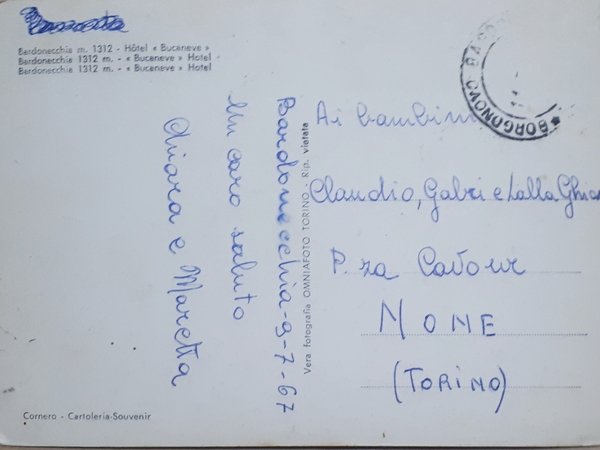 Bardonecchia m. 1312 - Hôtel « Bucaneve »
Bardonecchia 1312 m. - « Bucaneve » Hotel
Bardonecchia 1312 m. - « Bucaneve » Hotel
Bardonecchia-9-7-67
Un caro saluto
Chiara e Maretta
Vera fotografia OMNIAFOTO TORINO - Rip. vietata
BORGONOVO
Ai bambini
Claudio, Gabri e Lalla
P.za Cavour
NONE
(TORINO)
Cornero - Cartoleria-Souvenir